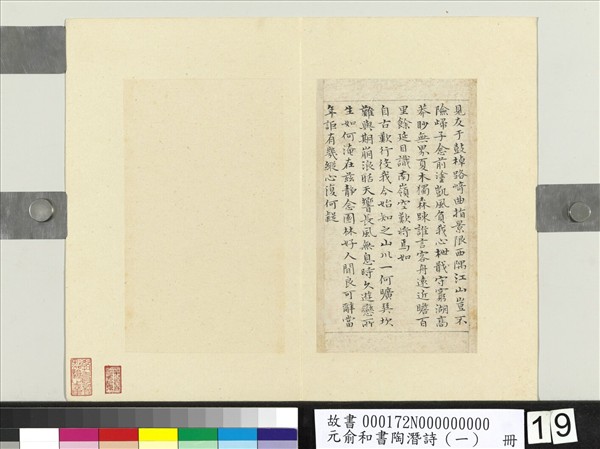 見友于鼓棹路崎曲指景限西隅江山豈不
險歸子念前塗凱風負我心枻戢守窮湖高
莽眇無界夏木獨森疎誰言客舟遠近瞻百
里餘延目識南嶺空歎將焉如
自古歎行役我今始知之山川一何曠巽坎
難與期崩浪聒天響長風無息時久遊戀所
生如何淹在茲靜念園林好人間良可辭當
年詎有幾縱心復何疑
故書 000172N000000000
元俞和書陶潛詩(一) 冊
19